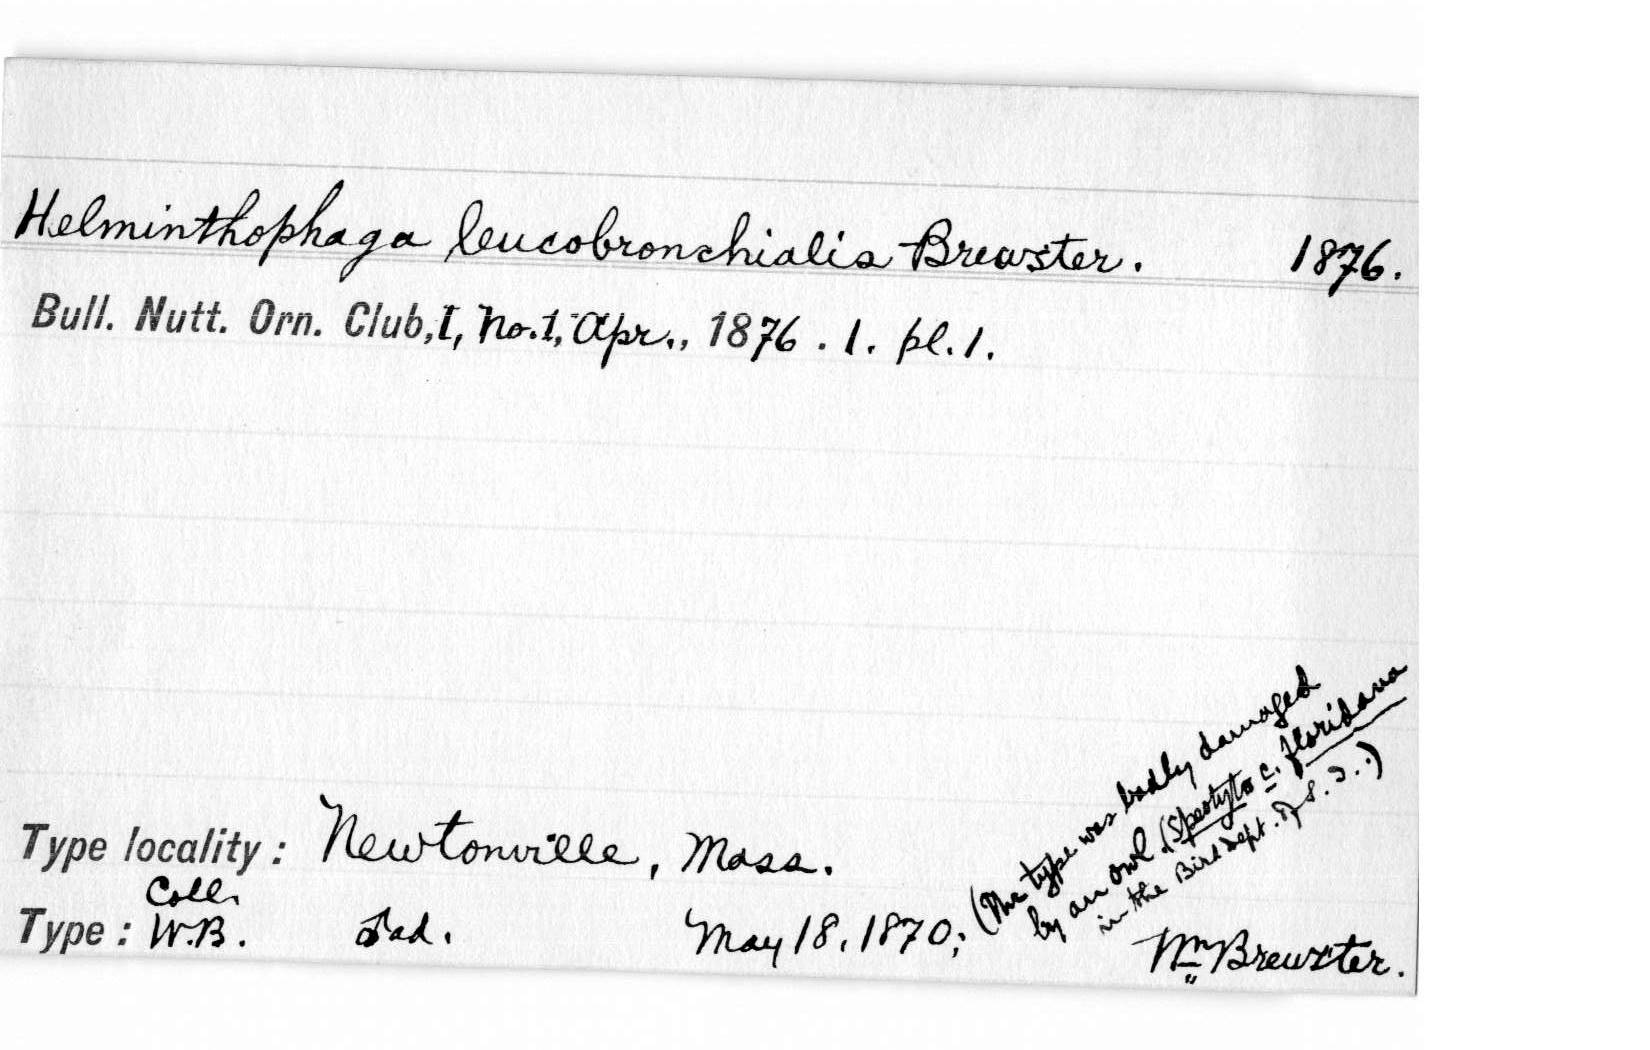 Helminthophaga leucobronchialis Brewster. 1876.
Bull. Nutt. Orn. Club, I, No. 1, Apr., 1876. 1. pl. 1.
Type locality: Newtonville, Mass.
Coll.
Type: W.B. ♂ad. May 18, 1870;
(The type was badly damaged
by an owl (Speotyto c. floridana
in the Bird Dept. of
Wm Brewster.